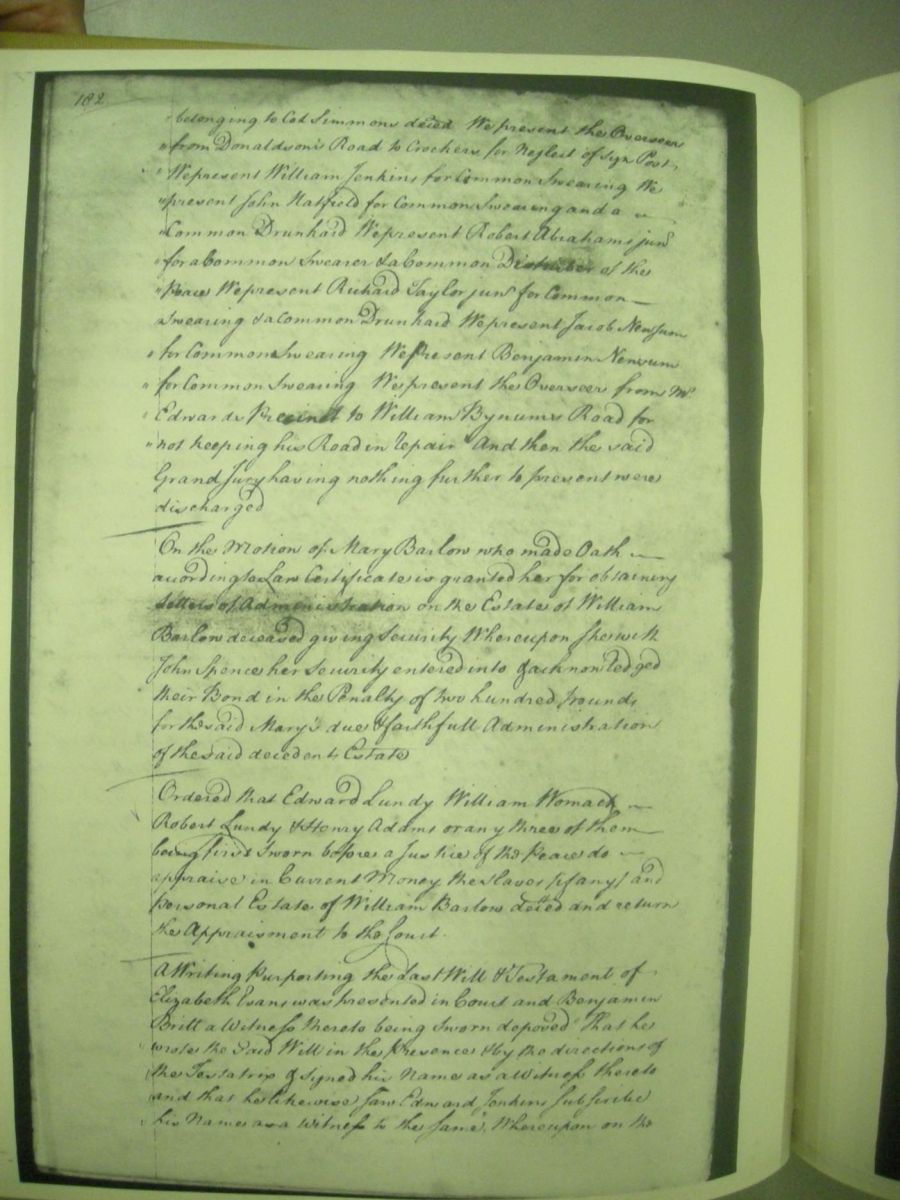 182
"belonging to Col Simmons deced We present the Overseer
"from Donaldson's Road to Crockers for Neglect of Sign Post,
"We present William Jenkins for Common Swearing We
"present John Hatfield for Common Swearing and a
"Common Drunkard We present Robert Abrahams junr
"for a Common Swearer & a Common Disturber of the
"Peace We present Richard Taylor junr for Common
"Swearing & a Common Drunkard We present Jacob Newsum
"for Common Swearing We present Benjamin Newsum
"for Common Swearing We present the Overseer from Mr
"Edwards Precinct to William Bynums Road for
"not keeping his Road in repair" And then the said
Grand Jury having nothing further to present were
discharged
On the Motion of Mary Barlow who made Oath
according to Law Certificate is granted her for obtaining
Letters of Administration on the Estate of William
Barlow deceased giving Security Whereupon She with
John Spence her Security entered into & acknowledged
their Bond in the Penalty of two hundred pounds
for the said Mary's due & faithfull Administration
of the said decedents Estate
Ordered that Edward Lundy William Womack
Robert Lundy & Henry Adams or any three of them
being first Sworn before a Justice of the Peace do
appraise in Current Money the Slaves (if any) and
personal Estate of William Barlow deced and return
the Appraisment to the Court.
A Writing Purporting the Last Will & Testament of
Elizabeth Evans was presented in Court and Benjamin
Britt a Witness thereto being Sworn deposed "That he
wrote the Said Will in the Presence & by the directions of
the Testatrix & Signed his Name as a Witness thereto
and that he likewise saw Edward Jenkins Subscribe
his Name as a Witness to the same", Whereupon on the